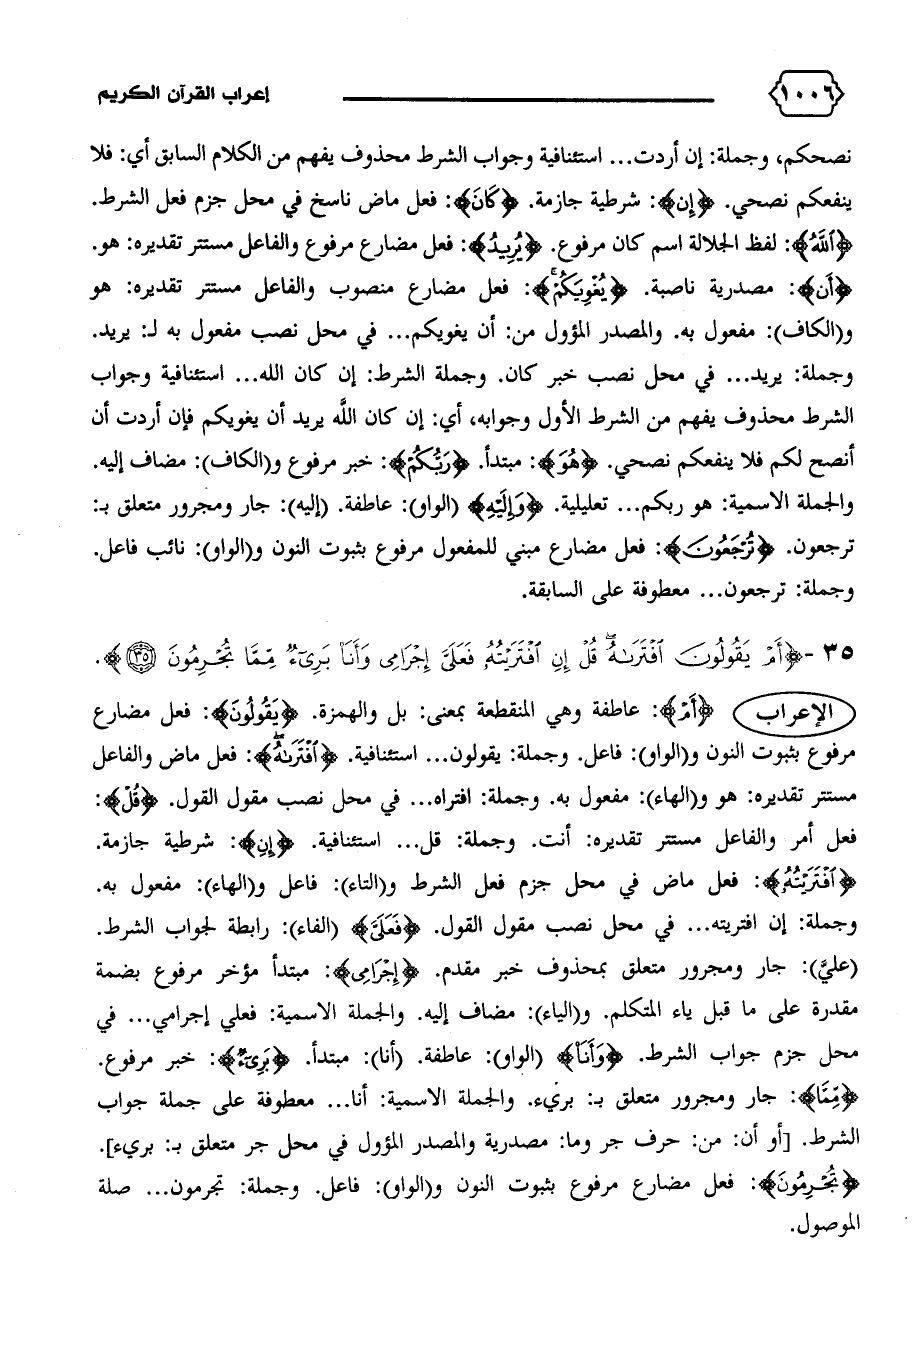 ١٠٠٦ إعراب القرآن الكريم
نصحكم، وجملة: إن أردت... استئنافية وجواب الشرط محذوف يفهم من الكلام السابق أي: فلا
ينفعكم نصحي. ﴿إِن﴾: شرطية جازمة. ﴿كَانَ﴾: فعل ماض ناسخ في محل جزم فعل الشرط.
﴿ٱللَّهُ﴾: لفظ الجلالة اسم كان مرفوع. ﴿يُرِيدُ﴾: فعل مضارع مرفوع والفاعل مستتر تقديره: هو.
﴿أَن﴾: مصدرية ناصبة. ﴿يُغْوِيَكُمْ﴾: فعل مضارع منصوب والفاعل مستتر تقديره: هو
و(الكاف): مفعول به. والمصدر المؤول من: أن يغويكم... في محل نصب مفعول به لـ: يريد.
وجملة: يريد... في محل نصب خبر كان. وجملة الشرط: إن كان الله... استئنافية وجواب
الشرط محذوف يفهم من الشرط الأول وجوابه، أي: إن كان اللَّه يريد أن يغويكم فإن أردت أن
أنصح لكم فلا ينفعكم نصحي. ﴿هُوَ﴾: مبتدأ. ﴿رَبُّكُمْ﴾: خبر مرفوع و(الكاف): مضاف إليه.
والجملة الاسمية: هو ربكم... تعليلية. ﴿وَإِلَيْهِ﴾ (الواو): عاطفة. (إليه): جار ومجرور متعلق بـ:
ترجعون. ﴿تُرْجَعُونَ﴾: فعل مضارع مبني للمفعول مرفوع بثبوت النون و(الواو): نائب فاعل.
وجملة: ترجعون... معطوفة على السابقة.
٣٥ - ﴿أَمْ يَقُولُونَ ٱفْتَرَىٰهُ ۖ قُلْ إِنِ ٱفْتَرَيْتُهُۥ فَعَلَىَّ إِجْرَامِى وَأَنَا۠ بَرِىٓءٌ مِّمَّا تُجْرِمُونَ ٣٥﴾.
الإعراب ﴿أَمْ﴾: عاطفة وهي المنقطعة بمعنى: بل والهمزة. ﴿يَقُولُونَ﴾: فعل مضارع
مرفوع بثبوت النون و(الواو): فاعل. وجملة: يقولون... استئنافية. ﴿ٱفْتَرَىٰهُ ۖ﴾: فعل ماض والفاعل
مستتر تقديره: هو و(الهاء): مفعول به. وجملة: افتراه... في محل نصب مقول القول. ﴿قُلْ﴾:
فعل أمر والفاعل مستتر تقديره: أنت. وجملة: قل... استئنافية. ﴿إِنِ﴾: شرطية جازمة.
﴿ٱفْتَرَيْتُهُۥ﴾: فعل ماض في محل جزم فعل الشرط و(التاء): فاعل و(الهاء): مفعول به.
وجملة: إن افتريته... في محل نصب مقول القول. ﴿فَعَلَىَّ﴾ (الفاء): رابطة لجواب الشرط.
(عليَّ): جار ومجرور متعلق بمحذوف خبر مقدم. ﴿إِجْرَامِى﴾: مبتدأ مؤخر مرفوع بضمة
مقدرة على ما قبل ياء المتكلم. و(الياء): مضاف إليه. والجملة الاسمية: فعلي إجرامي... في
محل جزم جواب الشرط. ﴿وَأَنَا۠﴾ (الواو): عاطفة. (أنا): مبتدأ. ﴿بَرِىٓءٌ﴾: خبر مرفوع.
﴿مِّمَّا﴾: جار ومجرور متعلق بـ: بريء. والجملة الاسمية: أنا... معطوفة على جملة جواب
الشرط. [أو أن: من: حرف جر وما: مصدرية والمصدر المؤول في محل جر متعلق بـ: بريء].
﴿تُجْرِمُونَ﴾: فعل مضارع مرفوع بثبوت النون و(الواو): فاعل. وجملة: تجرمون... صلة
الموصول.